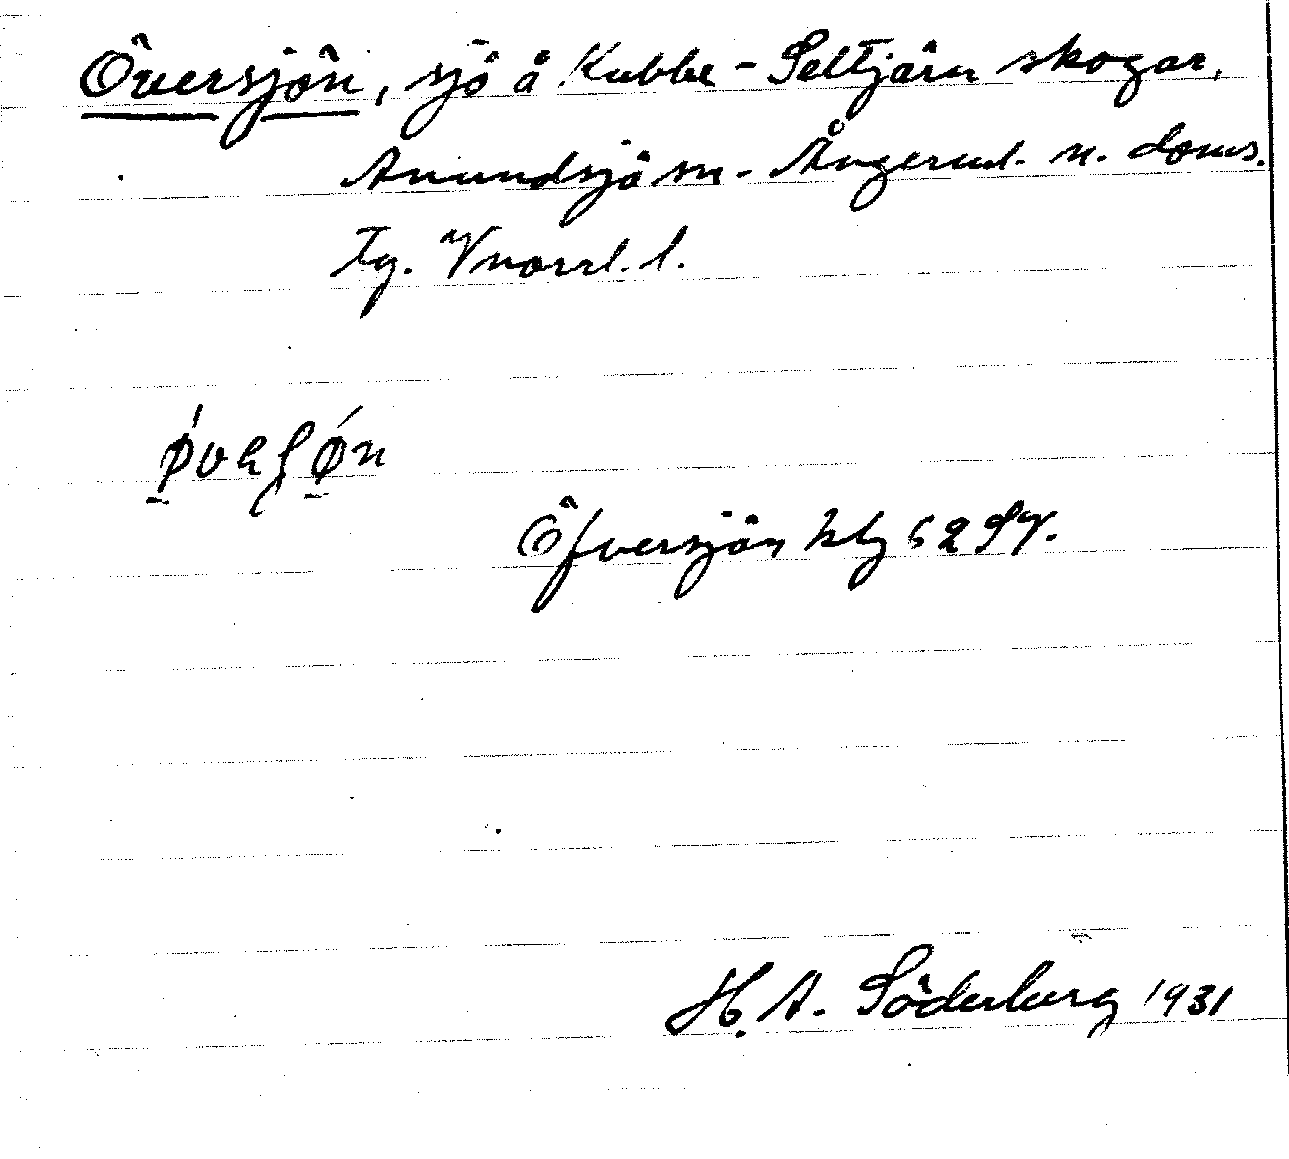 Översjön, sjö å Kubbe-Seltjärn skogar,
Anundsjö sn. Ångerml. n. doms.
Tg. Vnorrl. l.
Öfversjön hbg 62 SV.
H. A. Söderberg 1931